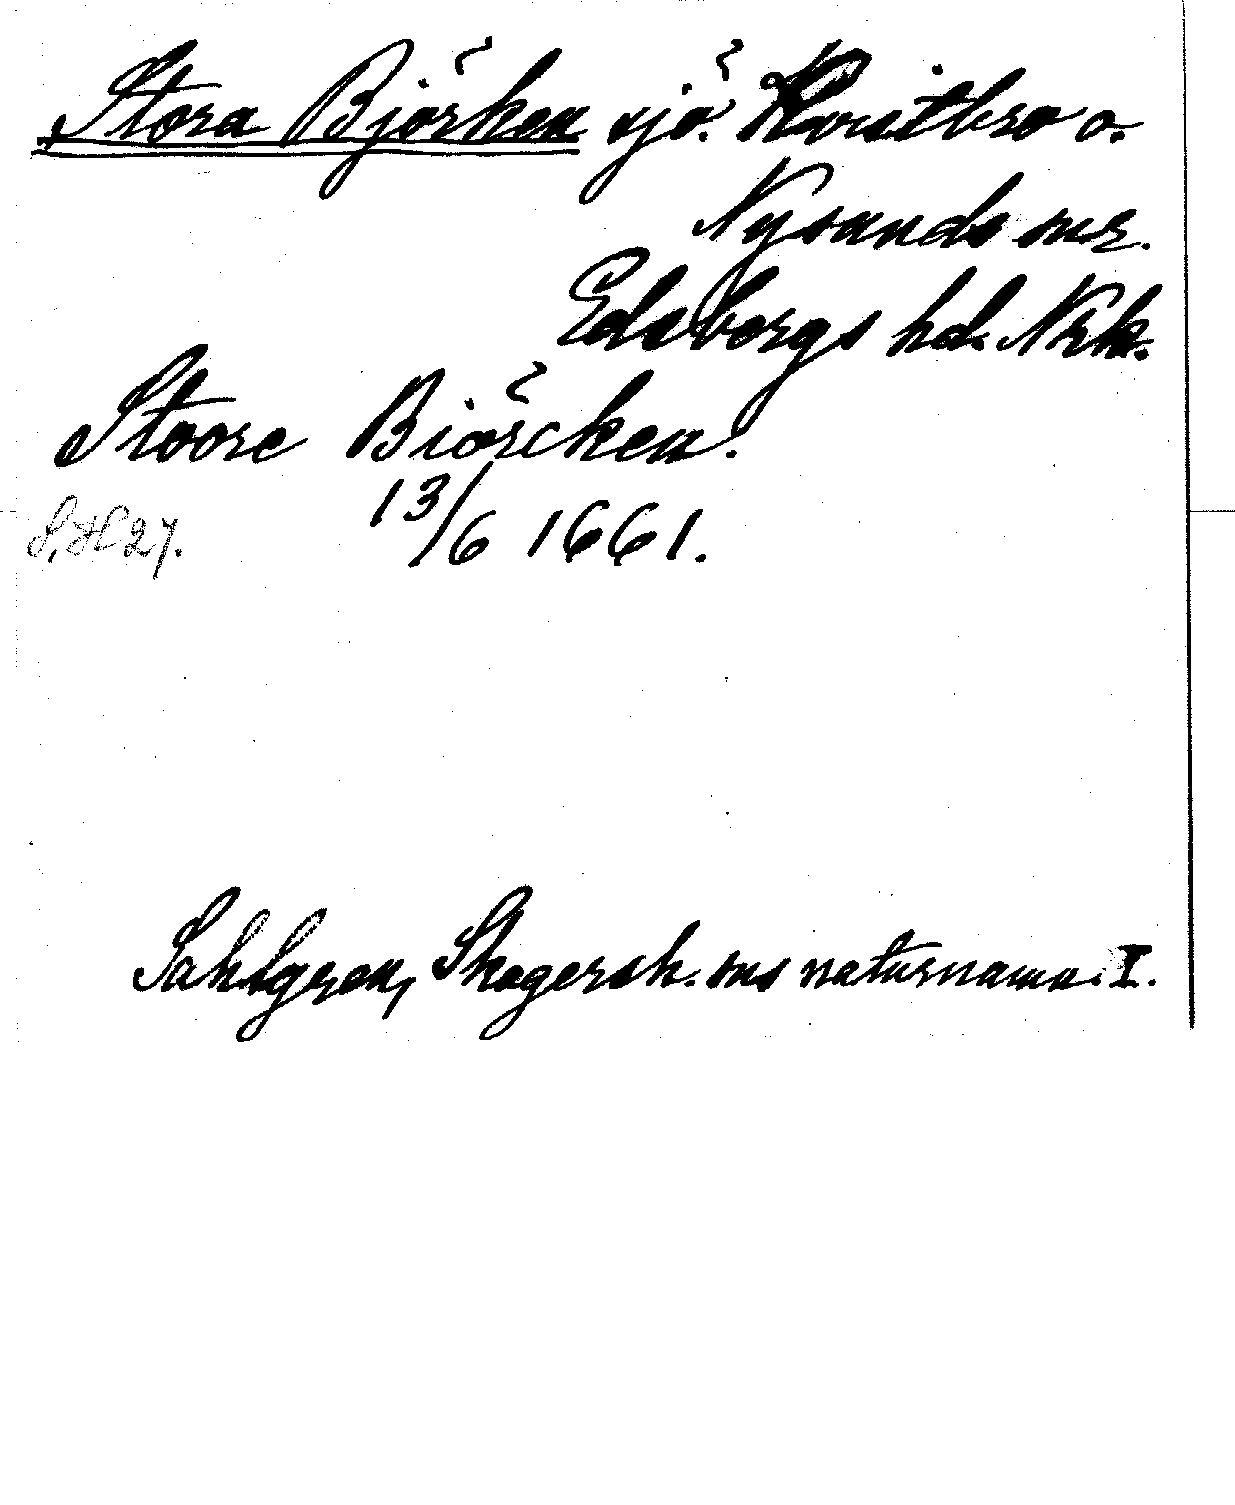 Stora Björken sjö. Kvistbro o.
Nysunds snr.
Edsbergs hd. Nrk.
Stoore Biörcken.
13/6 1661.
S. 27.
Sahlgren, Skagersh. sns naturnamn. I.